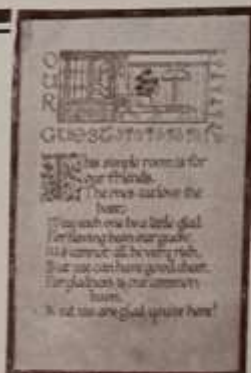 OUR
GUEST
This simple room is for
our friends,
The ones we love the
best;
May each one be a little glad
For having been our guest.
We cannot all be very rich,
But we can have good cheer,
For gladness is our common
boon,
And we are glad you're here!